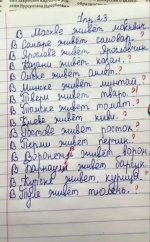 Упр. 23
В Москве живёт москвич.
В Самаре живёт самовар.
В Ярославе живёт Ярославчик.
В Казани живёт казан.
В Омске живёт омлет.
В Минске живёт минтай.
В Твери живёт тварь.
В Томске живёт томат.
В Киеве живёт киви.
В Ростове живёт росток.
В Перми живёт пермяк.
В Воронеже живёт ворон.
В Барнауле живёт барсук.
В Курске живёт курица.
В Туле живёт тюлень.